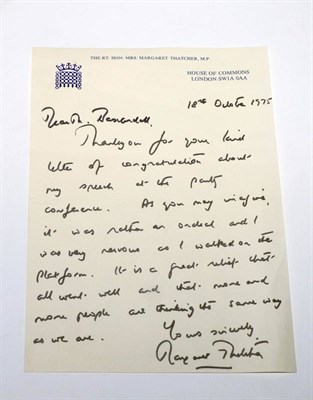 THE RT. HON. MRS. MARGARET THATCHER, M.P.
HOUSE OF COMMONS
LONDON SW1A 0AA
18th October 1975
Dear Mr.
Thank you for your kind
letter of congratulation about
my speech at the party
conference. As you may imagine,
it was rather an ordeal and I
was very nervous as I walked on the
platform. It is a great relief that
all went well and that more and
more people are thinking the same way
as we are.
Yours sincerely
Margaret Thatcher